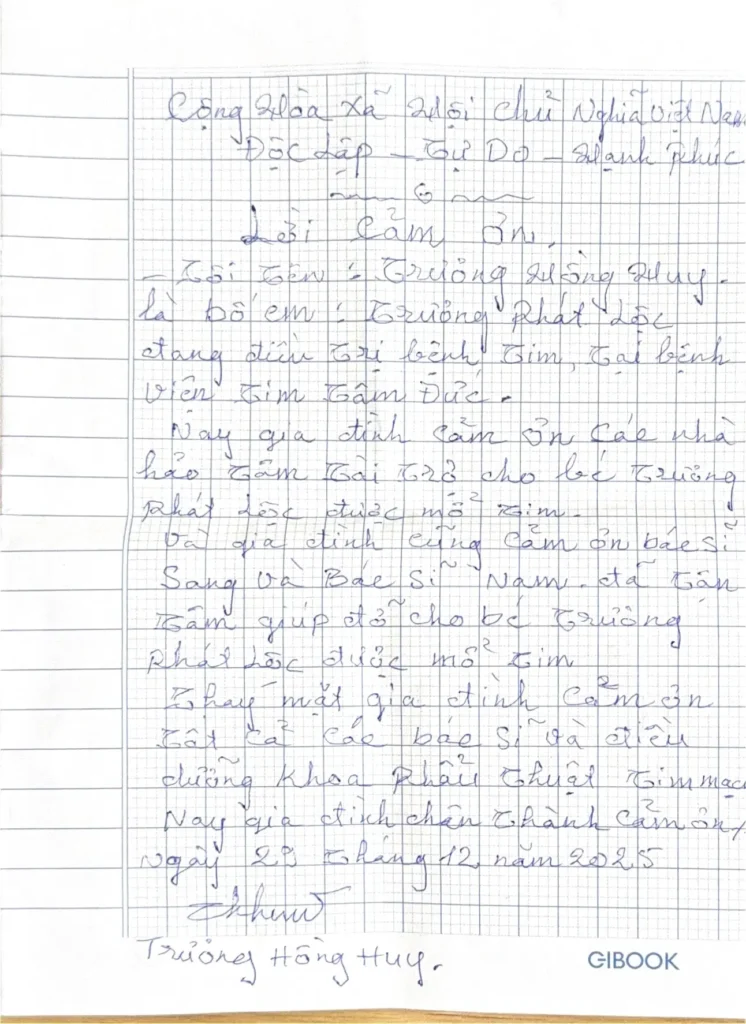 Cộng Hòa Xã Hội Chủ Nghĩa Việt Nam
Độc Lập - Tự Do - Hạnh Phúc
Lời Cảm ơn.
- Tôi tên : Trương Hồng Huy.
là bố em : Trương Phát Lộc
đang điều trị bệnh tim, tại bệnh
viện tim tâm Đức.
Nay gia đình cảm ơn các nhà
hảo tâm tài trợ cho bé Trương
Phát Lộc được mổ tim.
Và gia đình cũng cảm ơn bác sĩ
Sang và Bác sĩ Nam. đã tận
tâm giúp đỡ cho bé Trương
Phát Lộc được mổ tim
Thay mặt gia đình cảm ơn
tất cả các bác sĩ và điều
dưỡng khoa Phẩu thuật tim mạch
Nay gia đình chân thành cảm ơn/
Ngày 29 tháng 12 năm 2025
Trương Hồng Huy.
GIBOOK